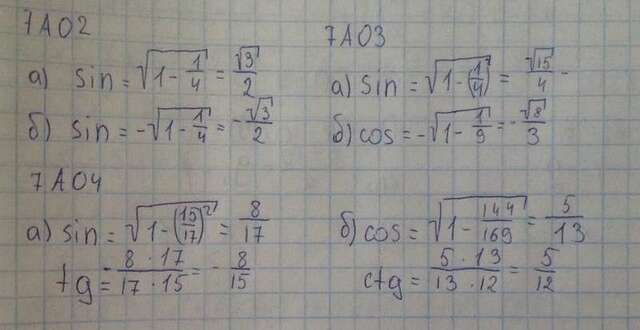 7А02
а) sin = √(1 - 1/4) = √3/2
б) sin = -√(1 - 1/4) = -√3/2
7А03
а) sin = √(1 - (1/4)²) = √15/4
б) cos = -√(1 - 1/9) = -√8/3
7А04
а) sin = √(1 - (15/17)²) = 8/17
tg = - (8 · 17)/(17 · 15) = - 8/15
б) cos = √(1 - 144/169) = 5/13
ctg = (5 · 13)/(13 · 12) = 5/12